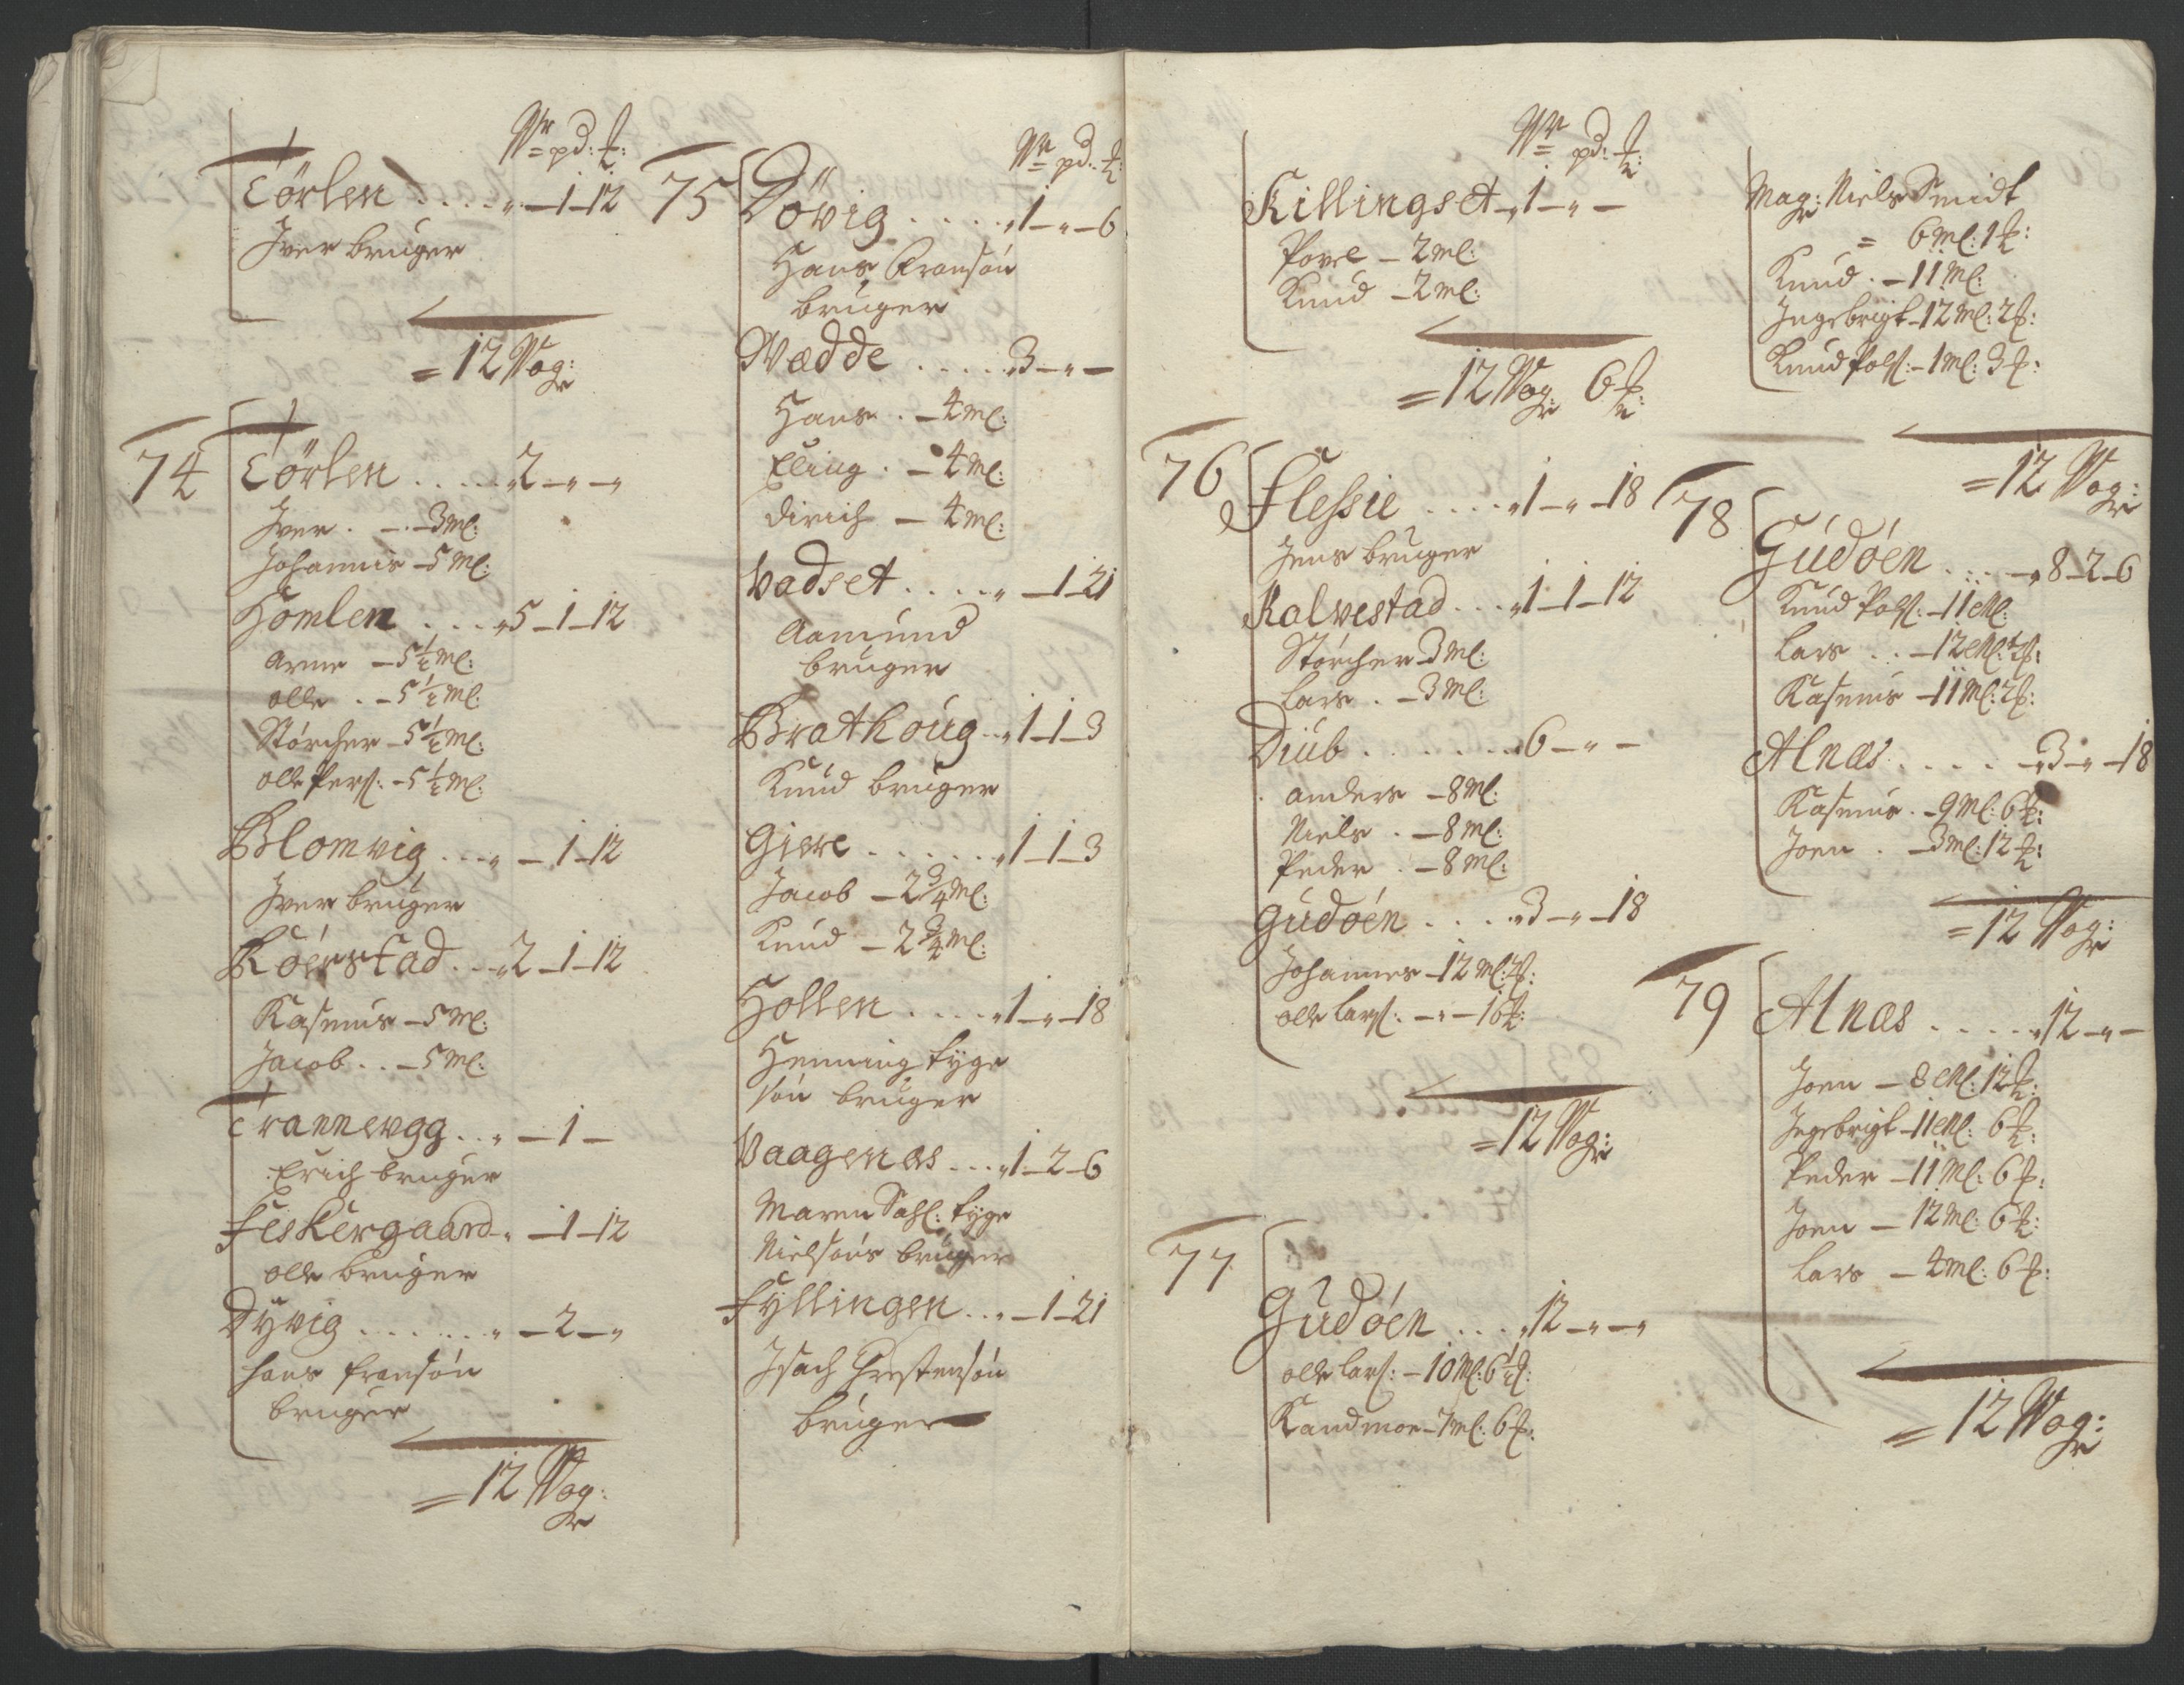 Wr pd: ℔:
Törlen . . . . „—1—12
Jver bruger
= 12 Wogr:
74 Törlen . . . . „2—„—„
Jver . — 3 Ml:
Johannis — 5 Ml:
Homlen . . . „5—1—12
Arne — 5½ Ml:
olle . — 5½ Ml:
Störcher — 5½ Ml:
olle Pers: — 5½ Ml:
Blomvig . . . „—1—12
Jver bruger
Röerstad . . „2—1—12
Rasmus — 5 Ml:
Jacob . . — 5 Ml:
Trannevgg . . „—1—
Erich bruger
Feskergaard . „—1—12
olle bruger
Dyvig . . . . . . „—2—„
hans fransön
bruger
= 12 Wogr:
Wr pd: ℔:
75 Dövig . . . . . „1—„—6
Hans Fransön
bruger
Wædde . . . . . „3—„—
Hans . — 4 Ml:
Elling . — 4 Ml:
Dirich — 4 Ml:
Vadset . . . . „—1—21
Aamund
bruger
Brathoug . . „1—1—3
Knud bruger
Giere . . . . . . „1—1—3
Jacob — 2¾ Ml:
Knud — 2¾ Ml:
Hollen . . . . „1—„—18
Henning tyge
sön bruger
Vaagenæs . . . „1—2—6
Maren Sahl: tyge
Nielsöns bruger
Fyllingen . . „—1—21
Jsach Christensön
bruger
Wr pd: ℔:
Killingset „1—„—
Povel — 2 Ml:
Knud — 2 Ml:
= 12 Wogr: 6 ℔:
76 Flessie . . . . „1—„—18
Jens bruger
Kalvestad . . „1—1—12
Störcher 3 Ml:
Lars . — 3 Ml:
Diub . . . . . . . „6—„—
Anders — 8 Ml:
Niels . — 8 Ml:
Peder . — 8 Ml:
Gudöen . . . . „3—„—18
Johannes — 12 Ml:
olle Lars: —„— 18 ℔:
= 12 Wogr:
77 Gudöen . . . „12—„—„
olle Lars: — 10 Ml: 6 ℔:
Randmoe — 7 Ml: 6 ℔:
Magr: Niels Smidt
= 6 Ml: 1 ℔:
Knud . — 11 Ml:
Ingebrigt — 12 Ml: 2 ℔:
Knud Pols: — 1 Ml: 3 ℔:
= 12 Wogr:
78 Gudöen . . . . „8—2—6
Knud Pols: — 11 Ml:
Lars . . — 12 Ml: 2 ℔:
Rasmus — 11 Ml: 2 ℔:
Alnæs . . . . . „3—„—18
Rasmus . — 9 Ml: 6 ℔:
Joen . — 3 Ml: 12 ℔:
= 12 Wogr:
79 Alnæs . . . . . „12—„—
Joen — 8 Ml: 12 ℔:
Ingebrigt — 11 Ml: 6 ℔:
Peder — 11 Ml: 6 ℔:
Joen — 12 Ml: 6 ℔:
Lars — 4 Ml: 6 ℔:
= 12 Wogr: